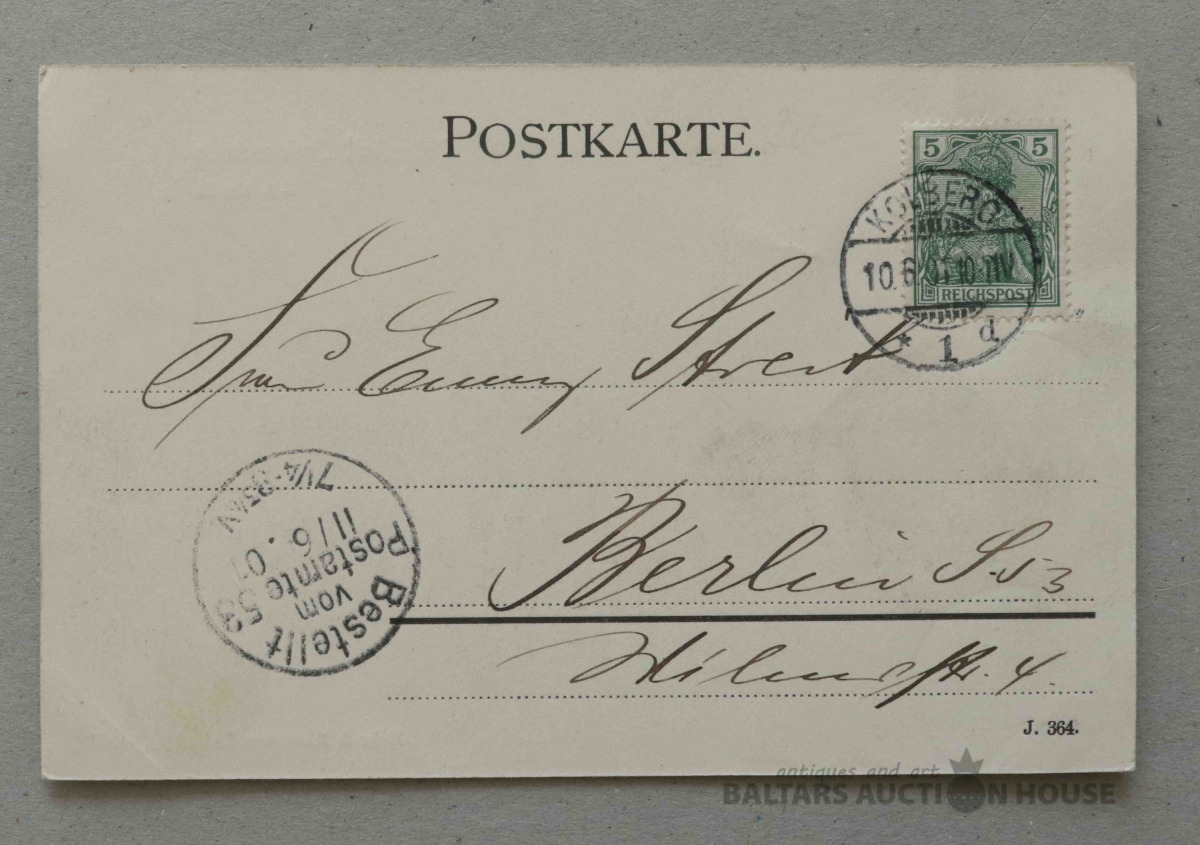 POSTKARTE.
5 5
REICHSPOST
KOLBERG
10.6.01.10-11V.
* 1 d
Frau Emmy Streit
Berlin S. 53
4.
Bestellt
vom
Postamte 53
11/6.01
7¼-8¾V
J. 364.
antiques and art
BALTARS AUCTION HOUSE